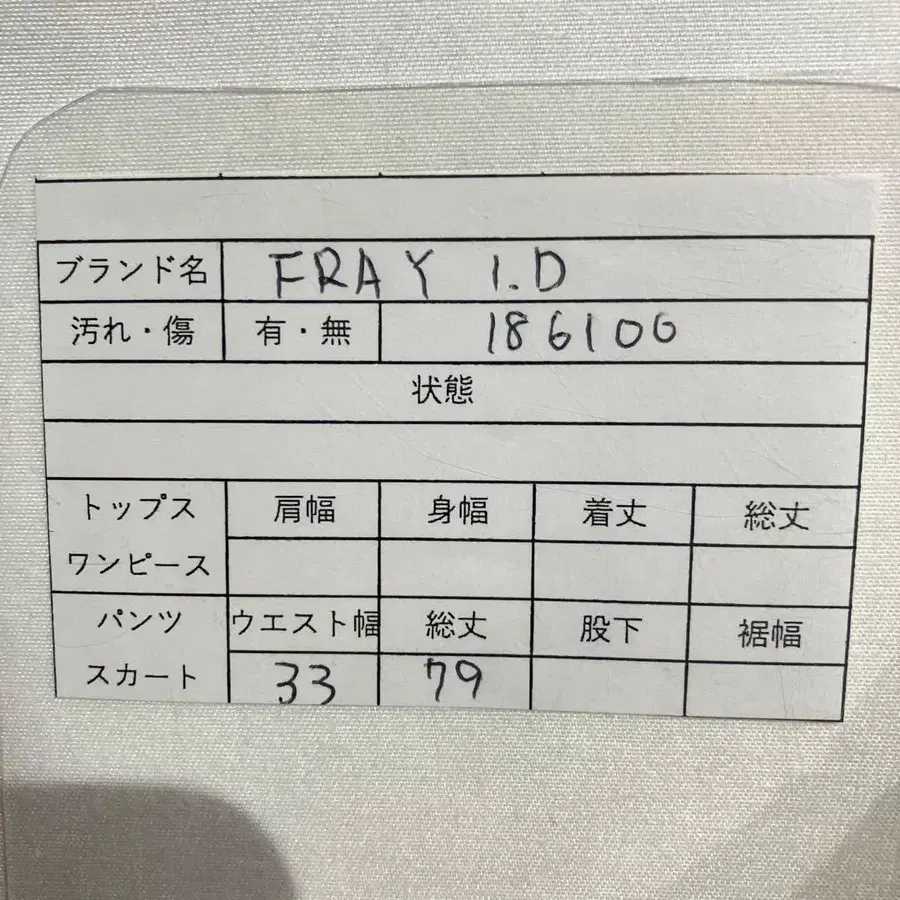 ブランド名 FRAY I.D
汚れ・傷 有・無 186100
状態
トップス 肩幅 身幅 着丈 総丈
ワンピース
パンツ ウエスト幅 総丈 股下 裾幅
スカート 33 79